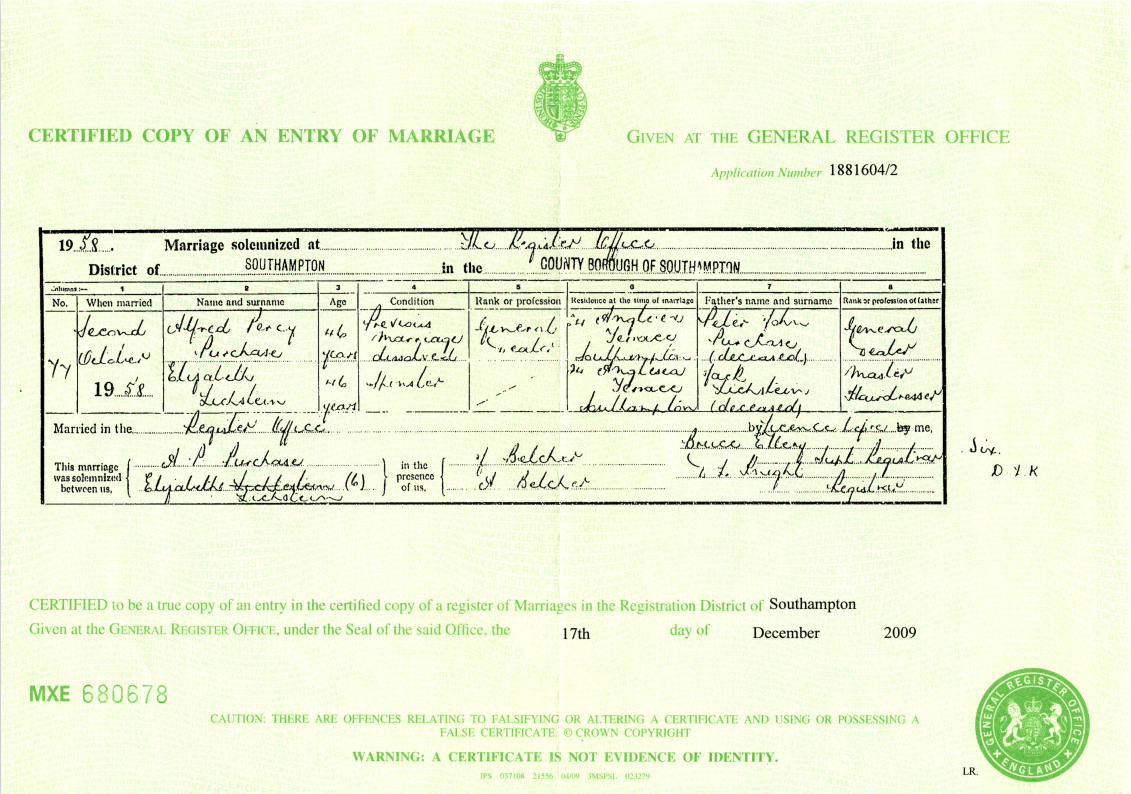 CERTIFIED COPY OF AN ENTRY OF MARRIAGE
GIVEN AT THE GENERAL REGISTER OFFICE
Application Number 1881604/2
1958. Marriage solemnized at The Register Office in the
District of SOUTHAMPTON in the COUNTY BOROUGH OF SOUTHAMPTON
Columns:— 1 2 3 4 5 6 7 8
No. When married Name and surname Age Condition Rank or profession Residence at the time of marriage Father's name and surname Rank or profession of father
77 Second October 1958
Alfred Percy Purchase
46 years
Previous marriage dissolved
General Dealer
24 Anglesea Terrace Southampton
Peter John Purchase (deceased)
General Dealer
Elizabeth Lichstein
46 years
Spinster
24 Anglesea Terrace Southampton
Jack Lichstein (deceased)
Master Hairdresser
Married in the Register Office by Licence before by me,
This marriage was solemnized between us,
A. P. Purchase
Elizabeth Lichstein (6)
in the presence of us,
J Belcher
A Belcher
Bruce Ellery Supt Registrar
D. F. Knight Registrar
Six.
D F K
CERTIFIED to be a true copy of an entry in the certified copy of a register of Marriages in the Registration District of Southampton
Given at the GENERAL REGISTER OFFICE, under the Seal of the said Office, the 17th day of December 2009
MXE 680678
CAUTION: THERE ARE OFFENCES RELATING TO FALSIFYING OR ALTERING A CERTIFICATE AND USING OR POSSESSING A
FALSE CERTIFICATE. © CROWN COPYRIGHT
WARNING: A CERTIFICATE IS NOT EVIDENCE OF IDENTITY.
IPS 037108 21556 04/09 3MSPSL 023279
LR.
GENERAL REGISTER OFFICE
ENGLAND